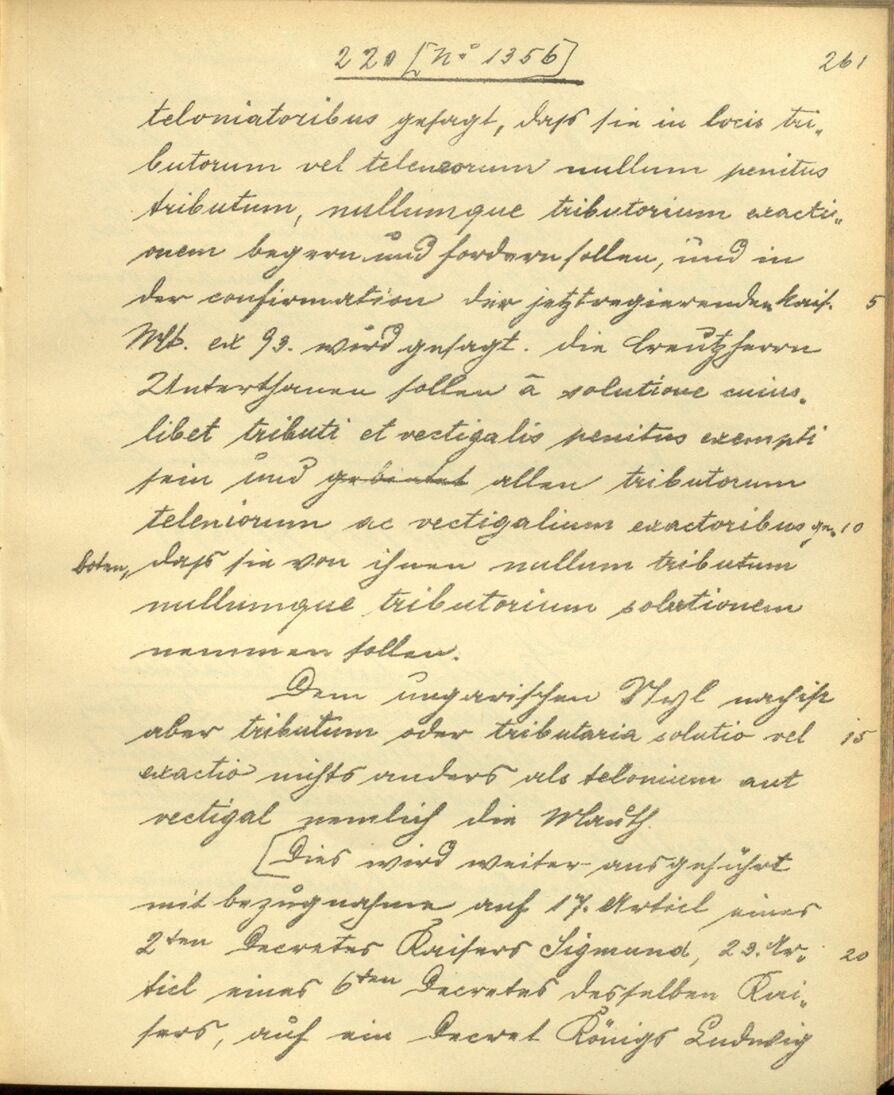 220 [No 1356] 261
teloniatoribus gesagt, dass sie in locis tri„
butorum vel teleneorum nullum penitus
tributum, nullumque tributorium exacti„
onem begern und fordern sollen, und in
der confirmation der jetztregierenden kais. 5
Mt. ex 93. wird gesagt. die Creutzherrn
Unterthanen sollen à solutione cuius„
libet tributi et vectigalis penitus exempti
sein und gebietet allen tributorum
teleniorum ac vectigalium exactoribus ge„ 10
boten, dass sie von ihnen nullum tributum
nullumque tributorium solutionem
nemmen sollen.
Dem ungarischen Styl nach ist
aber tributum oder tributaria solutio vel 15
exactio nichts anders als telonium aut
vectigal nemlich die Mauth.
[Dies wird weiter ausgeführt
mit bezugnahme auf 17. Articl eines
2ten Decretes Kaisers Sigmund, 23. Ar„ 20
ticl eines 6ten Decretes desselben Kai„
sers, auf ein Decret Königs Ludwig